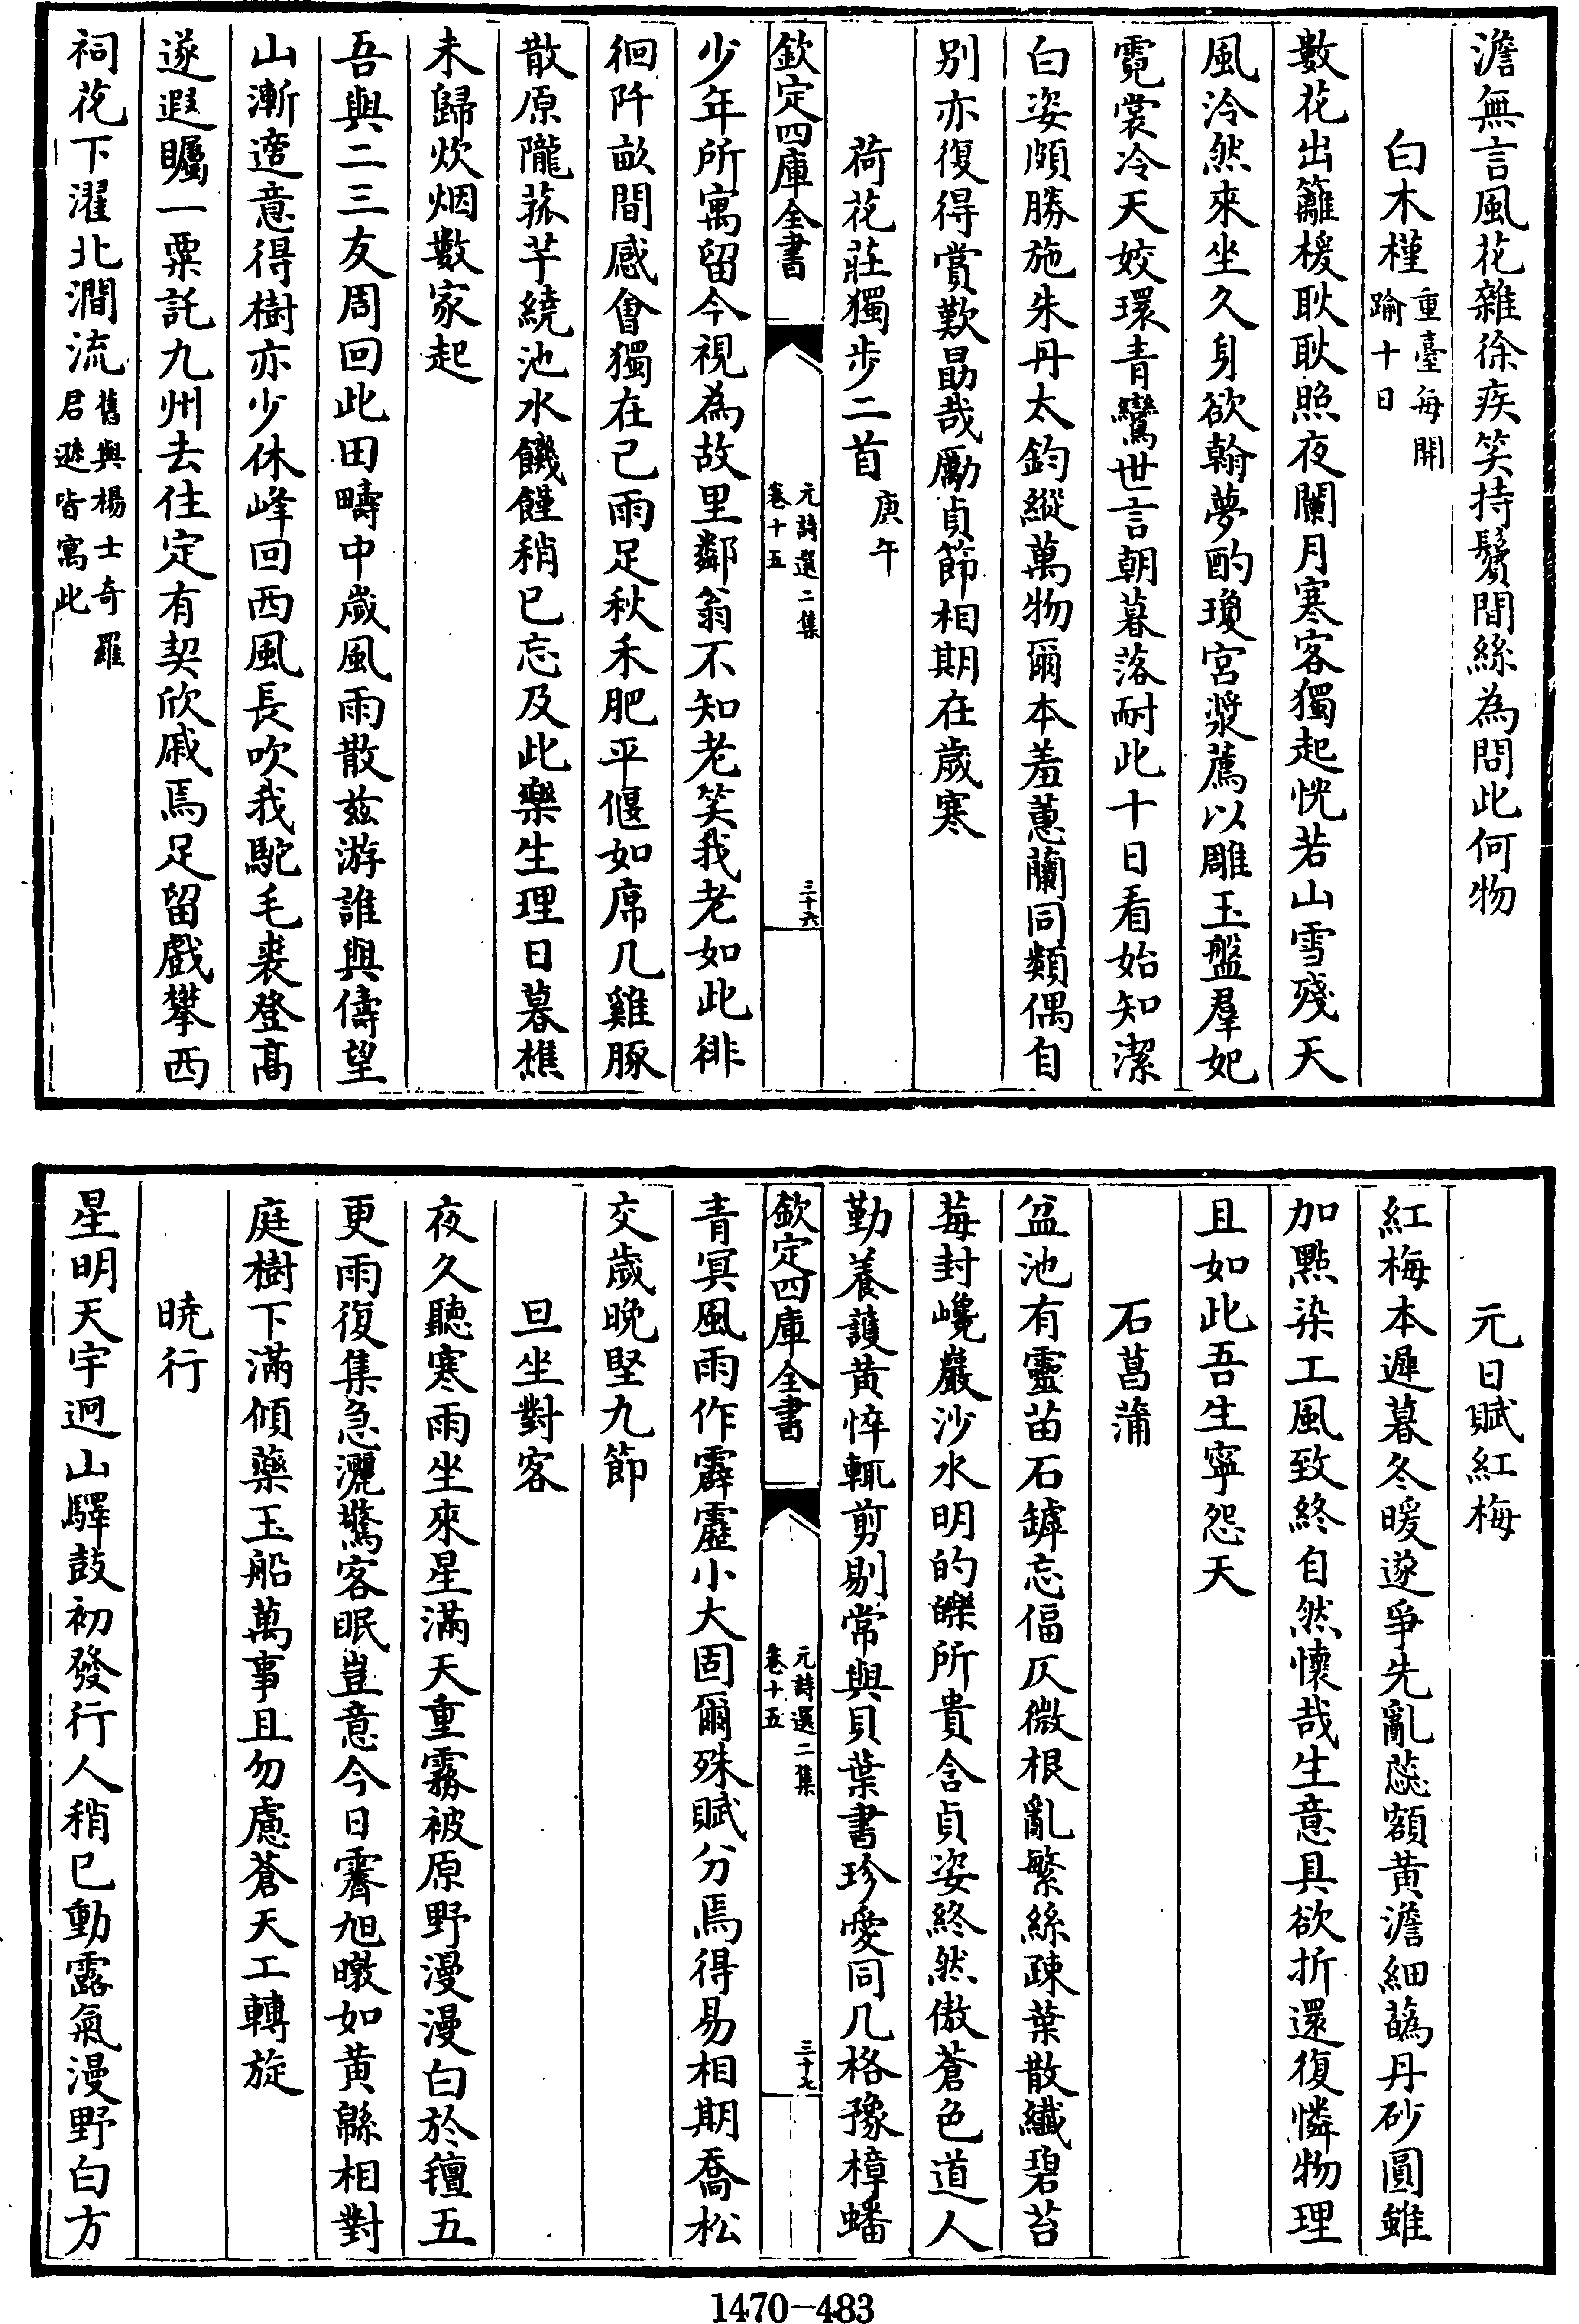 澹無言風花雜徐疾笑持鬢間絲為問此何物
白木槿重臺每開踰十日
數花出籬楥耿耿照夜闌月寒客獨起恍若山雪殘天
風泠然來坐久身欲翰夢酌瓊宮漿薦以雕玉盤羣妃
霓裳冷天姣環青鸞世言朝暮落耐此十日看始知潔
白姿頗勝施朱丹太鈞縱萬物爾本羞蕙蘭同類偶自
别亦復得賞歎勗哉勵貞節相期在歲寒
荷花莊獨步二首庚午
欽定四庫全書
元詩選二集
卷十五
三十六
少年所寓留今視為故里鄰翁不知老笑我老如此徘
徊阡畝間感會獨在己雨足秋禾肥平偃如席几雞豚
散原隴菰芋繞池水饑饉稍已忘及此樂生理日暮樵
未歸炊烟數家起
吾與二三友周回此田疇中歲風雨散兹游誰與儔望
山漸遼意得樹亦少休峰回西風長吹我駝毛裘登高
遂遐矚一粟託九州去住定有契欣戚焉足留戲攀西
祠花下濯北澗流舊與楊士奇羅君遜皆寓此
元日賦紅梅
紅梅本遲暮冬暖遂爭先亂蕊額黄澹細蘤丹砂圓雖
加點染工風致終自然懷哉生意具欲折還復憐物理
且如此吾生寧怨天
石菖蒲
盆池有靈苗石罅忘偪仄微根亂繁絲疎葉散纖碧苔
莓封巉巖沙水明的皪所貴含貞姿終然傲蒼色道人
勤養護黄悴輒剪剔常與貝葉書珍愛同几格豫樟蟠
欽定四庫全書
元詩選二集
卷十五
三十七
青冥風雨作霹靂小大固爾殊賦分焉得易相期喬松
交歲晚堅九節
旦坐對客
夜久聽寒雨坐來星滿天重霧被原野漫漫白於氊五
更雨復集急灑驚客眠豈意今日霽旭暾如黄緜相對
庭樹下滿傾藥玉船萬事且勿慮蒼天工轉旋
曉行
星明天宇迥山驛鼓初發行人稍已動露氣漫野白方
1470-483